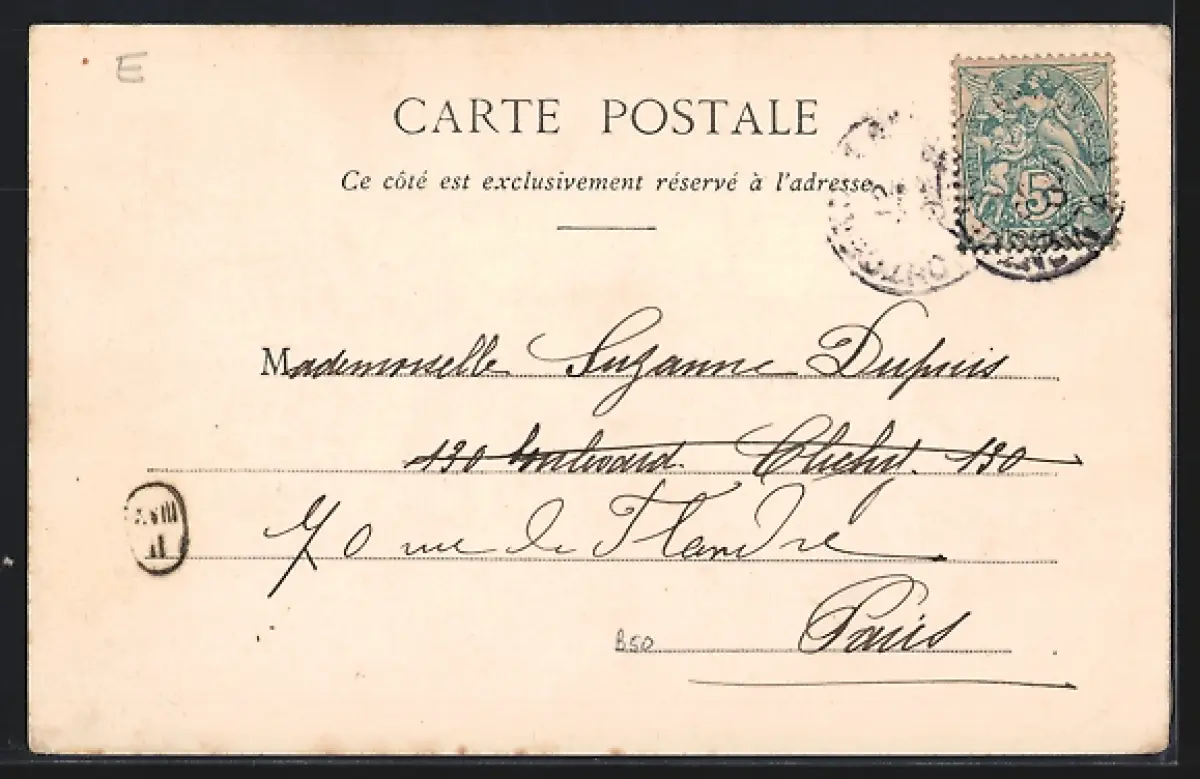 E
CARTE POSTALE
Ce côté est exclusivement réservé à l'adresse
5
Mademoiselle Suzanne Dupuis
130 boulevard Clichy. 130
70 rue de Flandre
Paris
B50